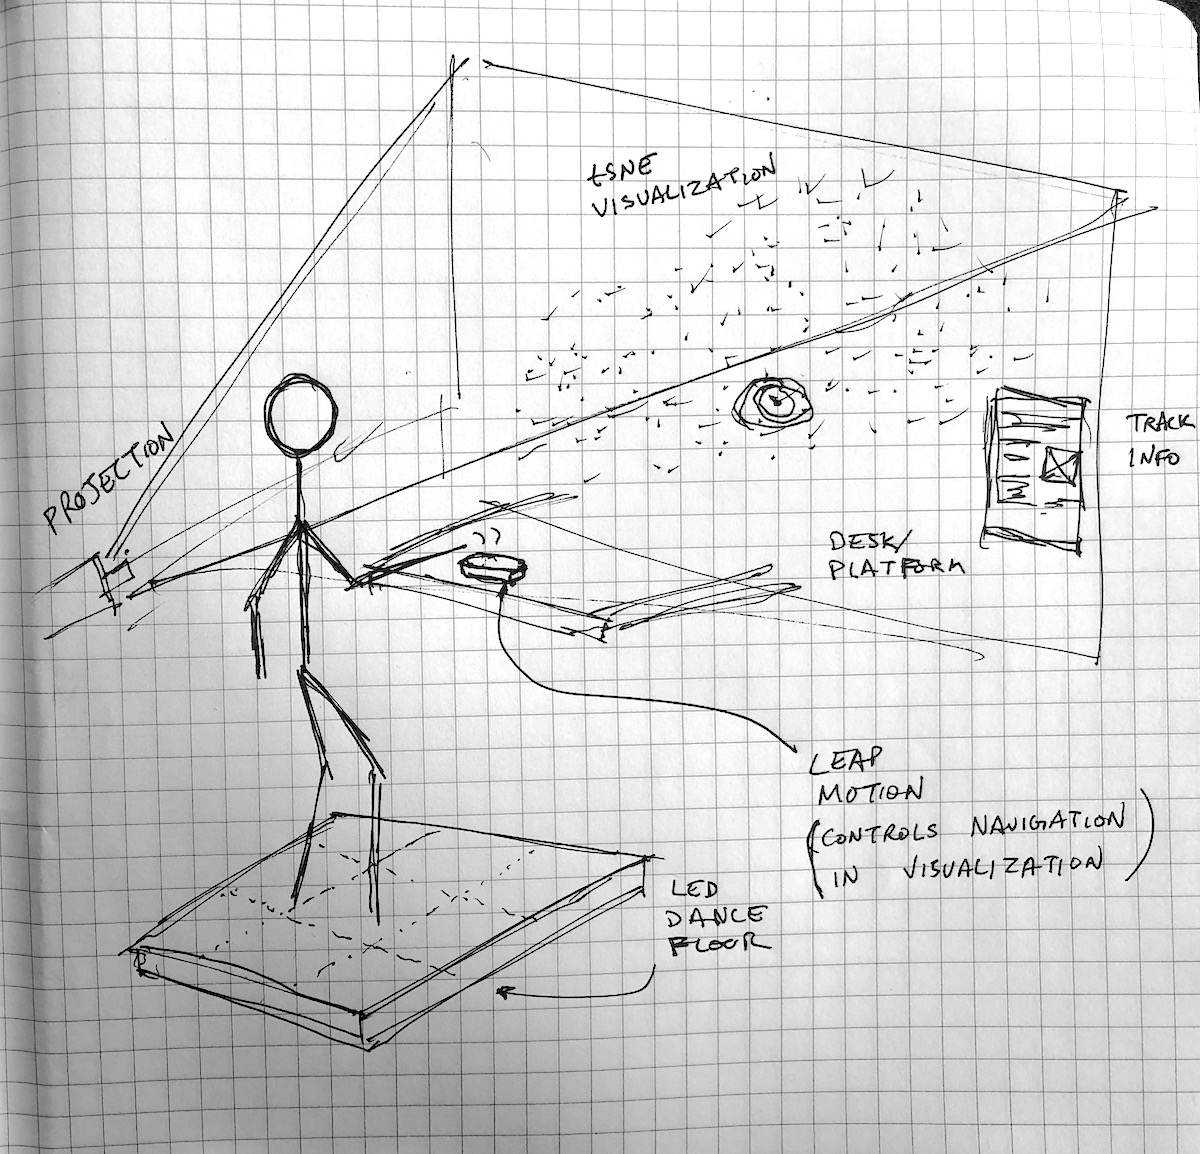 tSNE
VISUALIZATION
PROJECTION
TRACK
INFO
DESK/
PLATFORM
LEAP
MOTION
(CONTROLS NAVIGATION
IN VISUALIZATION)
LED
DANCE
FLOOR